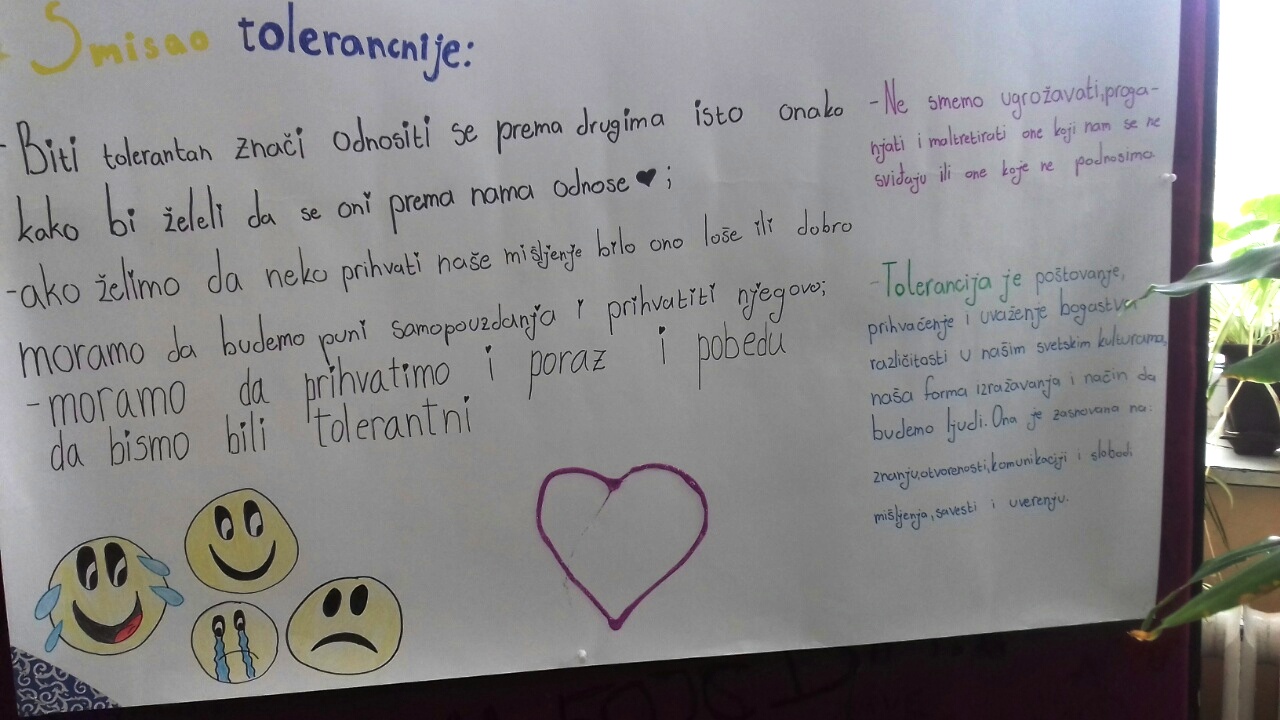 Smisao tolerancnije:
- Biti tolerantan znači odnositi se prema drugima isto onako
kako bi želeli da se oni prema nama odnose ♥ ;
-ako želimo da neko prihvati naše mišljenje bilo ono loše ili dobro
moramo da budemo puni samopouzdanja i prihvatiti njegovo;
-moramo da prihvatimo i poraz i pobedu
da bismo bili tolerantni
-Ne smemo ugrožavati,proga-
njati i maltretirati one koji nam se ne
sviđaju ili one koje ne podnosimo.
-Tolerancija je poštovanje,
prihvaćenje i uvaženje bogastva
različitosti u našim svetskim kulturama,
naša forma izražavanja i način da
budemo ljudi. Ona je zasnovana na:
znanju,otvorenosti,komunikaciji i slobodi
mišljenja, savesti i uverenju.